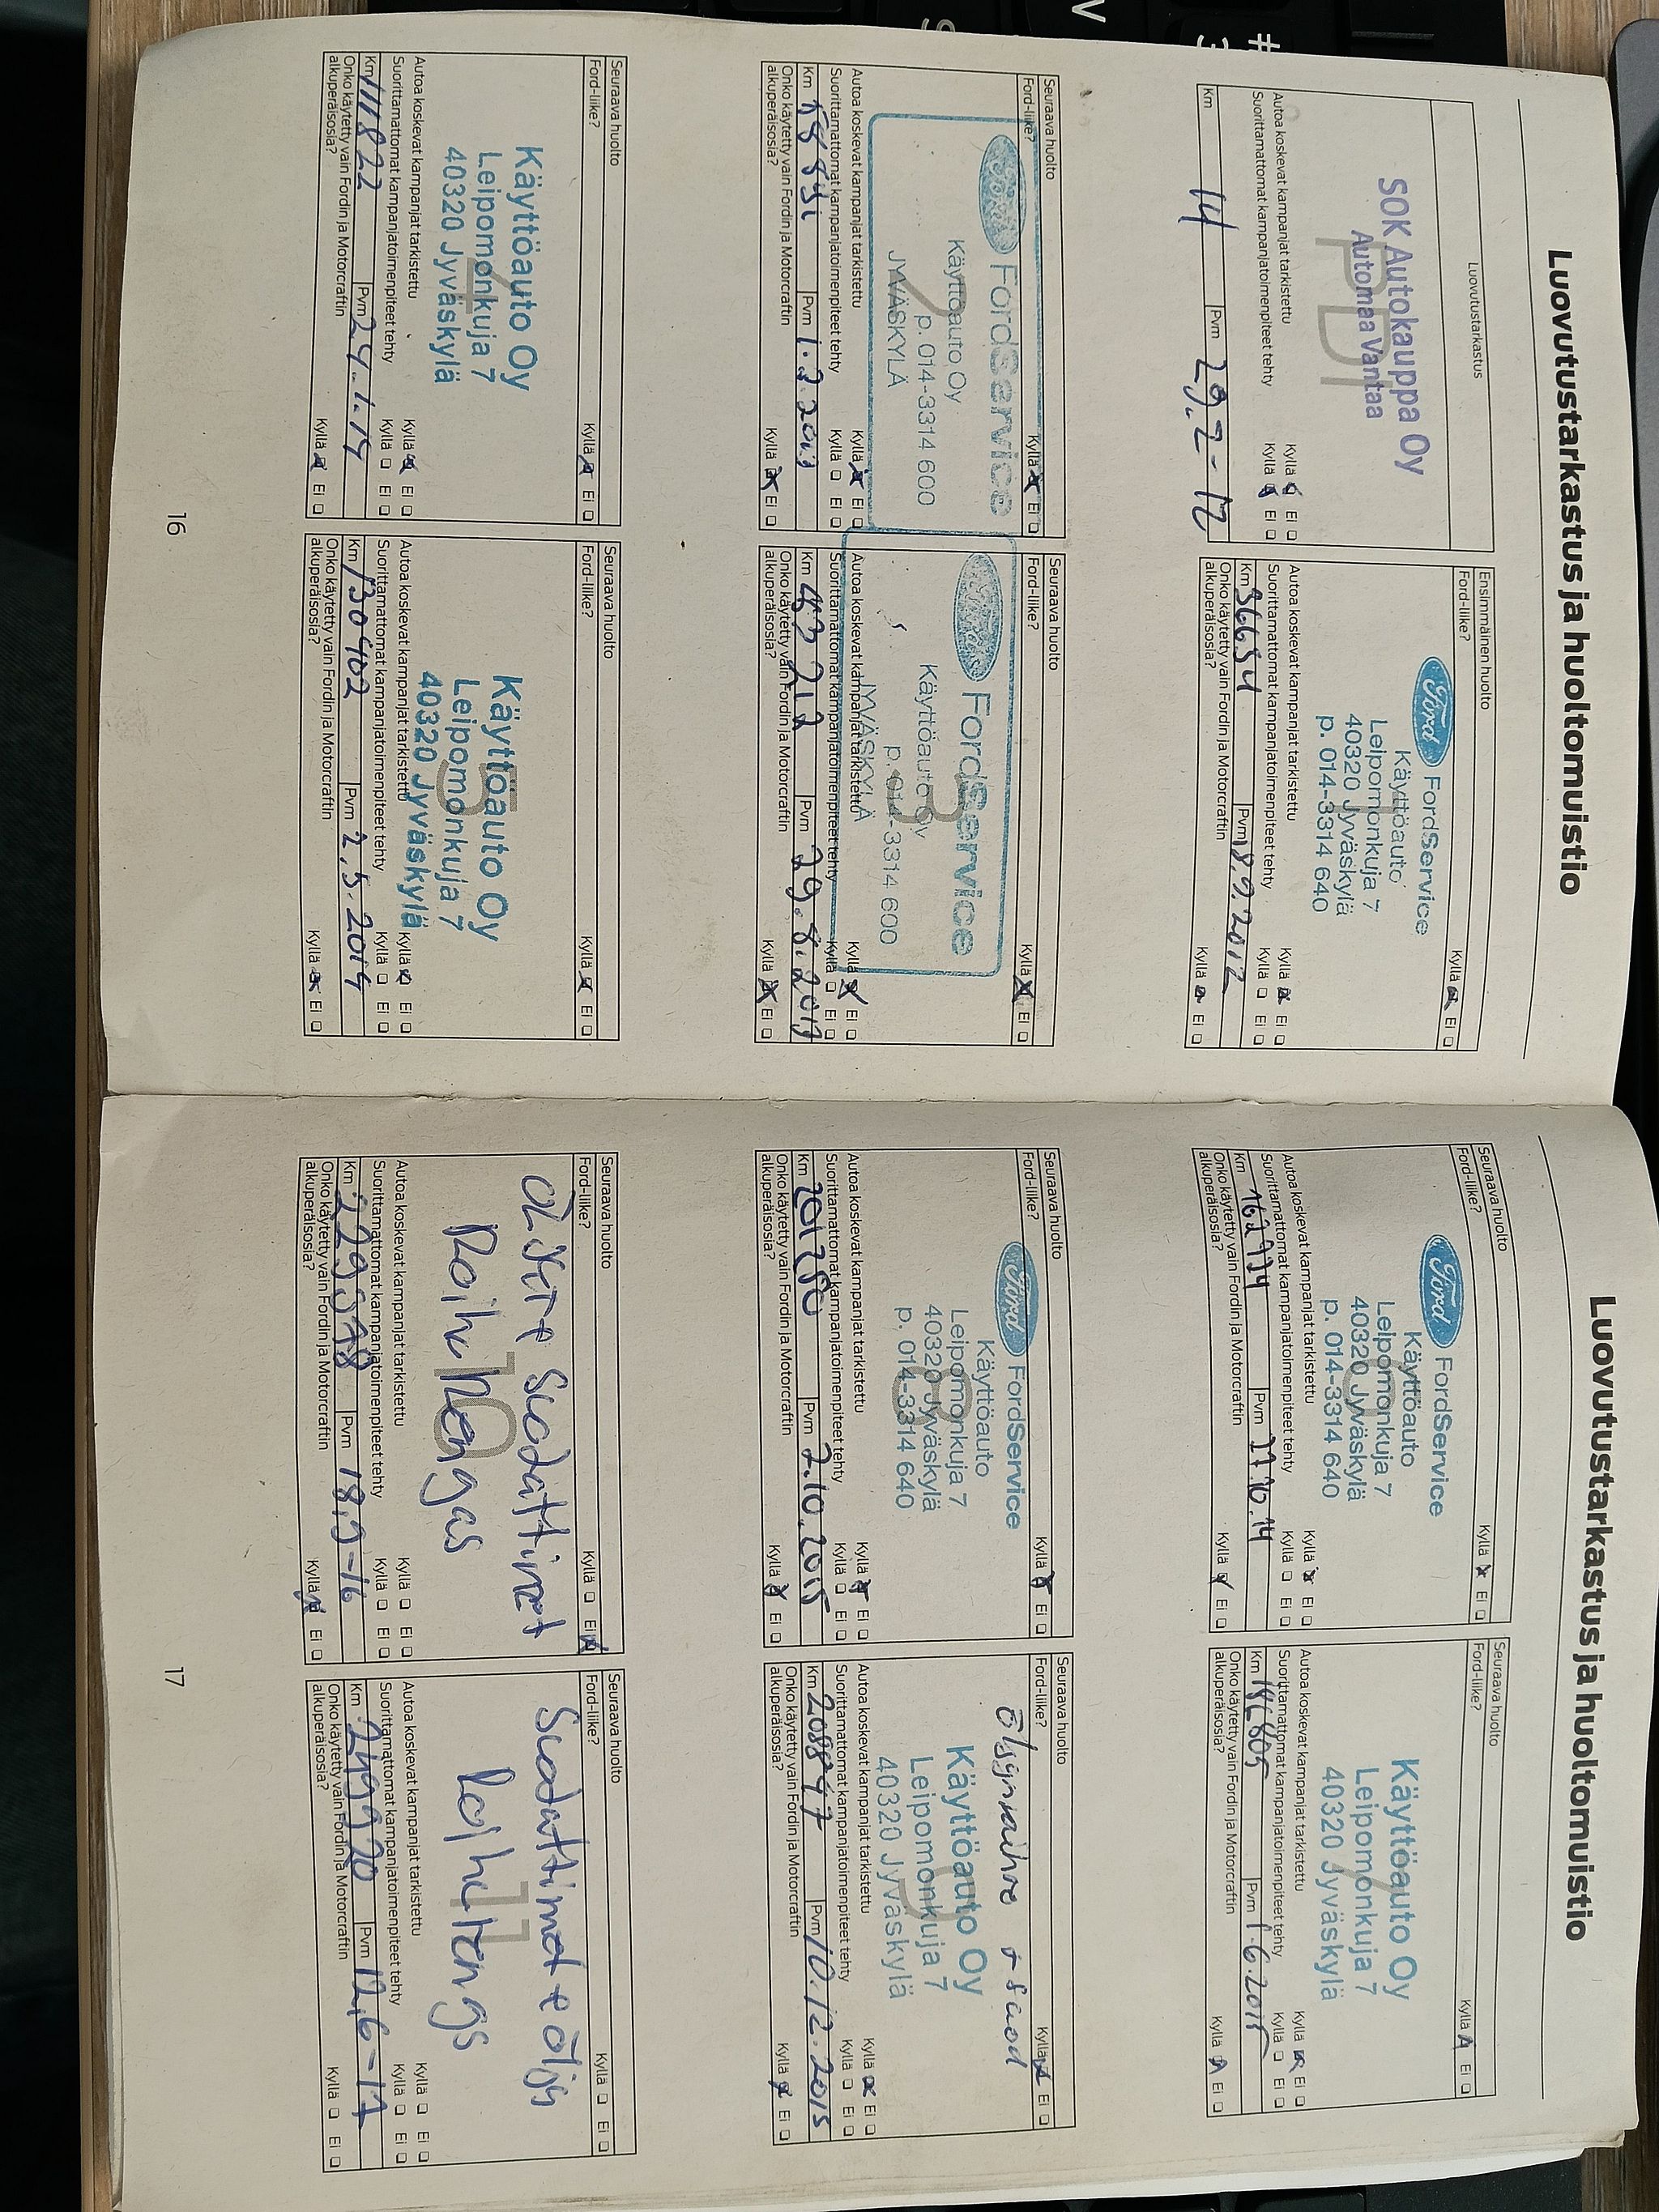 Luovutustarkastus ja huoltomuistio
Luovutustarkastus
PDI
SOK Autokauppa Oy
Automaa Vantaa
Autoa koskevat kampanjat tarkistettu Kyllä Ei
Suorittamattomat kampanjatoimenpiteet tehty Kyllä Ei
Km 14 Pvm 29.2-12
Ensimmäinen huolto
Ford-liike? Kyllä Ei
Ford FordService
Käyttöauto
Leipomonkuja 7
40320 Jyväskylä
p. 014-3314 640
Autoa koskevat kampanjat tarkistettu Kyllä Ei
Suorittamattomat kampanjatoimenpiteet tehty Kyllä Ei
Km 36654 Pvm 18.9.2012
Onko käytetty vain Fordin ja Motorcraftin
alkuperäisosia? Kyllä Ei
Seuraava huolto
Ford-liike? Kyllä Ei
2
Ford FordService
Käyttöauto Oy
p. 014-3314 600
JYVÄSKYLÄ
Autoa koskevat kampanjat tarkistettu Kyllä Ei
Suorittamattomat kampanjatoimenpiteet tehty Kyllä Ei
Km Pvm 1.2.2013
Onko käytetty vain Fordin ja Motorcraftin
alkuperäisosia? Kyllä Ei
Seuraava huolto
Ford-liike? Kyllä Ei
3
Ford FordService
Käyttöauto Oy
p. 014-3314 600
JYVÄSKYLÄ
Autoa koskevat kampanjat tarkistettu Kyllä Ei
Suorittamattomat kampanjatoimenpiteet tehty Kyllä Ei
Km Pvm 29.8.2013
Onko käytetty vain Fordin ja Motorcraftin
alkuperäisosia? Kyllä Ei
Seuraava huolto
Ford-liike? Kyllä Ei
4
Käyttöauto Oy
Leipomonkuja 7
40320 Jyväskylä
Autoa koskevat kampanjat tarkistettu Kyllä Ei
Suorittamattomat kampanjatoimenpiteet tehty Kyllä Ei
Km 111822 Pvm 24.1.14
Onko käytetty vain Fordin ja Motorcraftin
alkuperäisosia? Kyllä Ei
Seuraava huolto
Ford-liike? Kyllä Ei
5
Käyttöauto Oy
Leipomonkuja 7
40320 Jyväskylä
Autoa koskevat kampanjat tarkistettu Kyllä Ei
Suorittamattomat kampanjatoimenpiteet tehty Kyllä Ei
Km 130402 Pvm 2.5.2014
Onko käytetty vain Fordin ja Motorcraftin
alkuperäisosia? Kyllä Ei
16
Luovutustarkastus ja huoltomuistio
Seuraava huolto
Ford-liike? Kyllä Ei
6
Ford FordService
Käyttöauto
Leipomonkuja 7
40320 Jyväskylä
p. 014-3314 640
Autoa koskevat kampanjat tarkistettu Kyllä Ei
Suorittamattomat kampanjatoimenpiteet tehty Kyllä Ei
Km 162774 Pvm 17.10.14
Onko käytetty vain Fordin ja Motorcraftin
alkuperäisosia? Kyllä Ei
Seuraava huolto
Ford-liike? Kyllä Ei
7
Käyttöauto Oy
Leipomonkuja 7
40320 Jyväskylä
Autoa koskevat kampanjat tarkistettu Kyllä Ei
Suorittamattomat kampanjatoimenpiteet tehty Kyllä Ei
Km 186605 Pvm 1.6.2015
Onko käytetty vain Fordin ja Motorcraftin
alkuperäisosia? Kyllä Ei
Seuraava huolto
Ford-liike? Kyllä Ei
8
Ford FordService
Käyttöauto
Leipomonkuja 7
40320 Jyväskylä
p. 014-3314 640
Autoa koskevat kampanjat tarkistettu Kyllä Ei
Suorittamattomat kampanjatoimenpiteet tehty Kyllä Ei
Km 201750 Pvm 2.10.2015
Onko käytetty vain Fordin ja Motorcraftin
alkuperäisosia? Kyllä Ei
Seuraava huolto
Ford-liike? Kyllä Ei
Öljynvaihto + suod
9
Käyttöauto Oy
Leipomonkuja 7
40320 Jyväskylä
Autoa koskevat kampanjat tarkistettu Kyllä Ei
Suorittamattomat kampanjatoimenpiteet tehty Kyllä Ei
Km 208847 Pvm 10.12.2015
Onko käytetty vain Fordin ja Motorcraftin
alkuperäisosia? Kyllä Ei
Seuraava huolto
Ford-liike? Kyllä Ei
ÖLJYt + Suodattimet
10
Raiharengas
Autoa koskevat kampanjat tarkistettu Kyllä Ei
Suorittamattomat kampanjatoimenpiteet tehty Kyllä Ei
Km 229398 Pvm 18,9-16
Onko käytetty vain Fordin ja Motorcraftin
alkuperäisosia? Kyllä Ei
Seuraava huolto
Ford-liike? Kyllä Ei
Suodattimet + Öljy
11
Autoa koskevat kampanjat tarkistettu Kyllä Ei
Suorittamattomat kampanjatoimenpiteet tehty Kyllä Ei
Km 249920 Pvm 12,6-17
Onko käytetty vain Fordin ja Motorcraftin
alkuperäisosia? Kyllä Ei
17